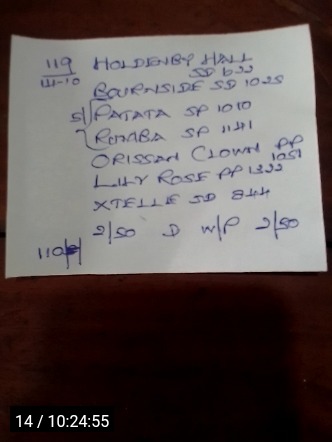 119 HOLDENBY HALL
111-10 SD 622
BOURNSIDE SD 1025
51 PATATA SP 1010
RUMBA SP 1141
ORISSAN CLOWN PP
1051
LILY ROSE PP 1322
XTELLE SD 844
2/50 D W/P 2/50
110
14 / 10:24:55